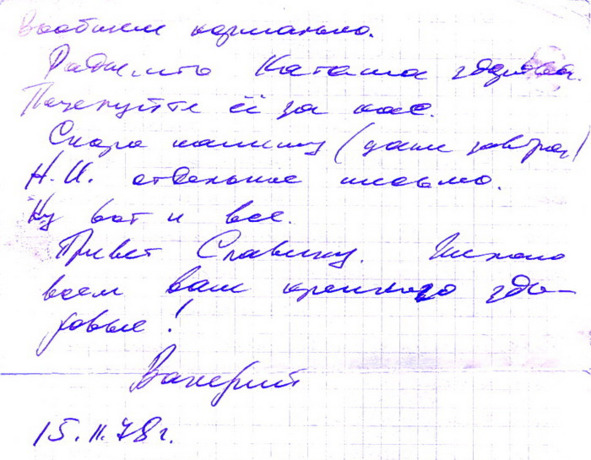 Вообщем нормально.
Рады, что Наташа здорова.
Поцелуйте её за нас.
Скоро напишу (даже завтра)
Н.И. отдельное письмо.
Ну вот и все.
Привет Славику. Желаю
всем вам крепкого здо-
ровье!
Валерий
15.II.78г.